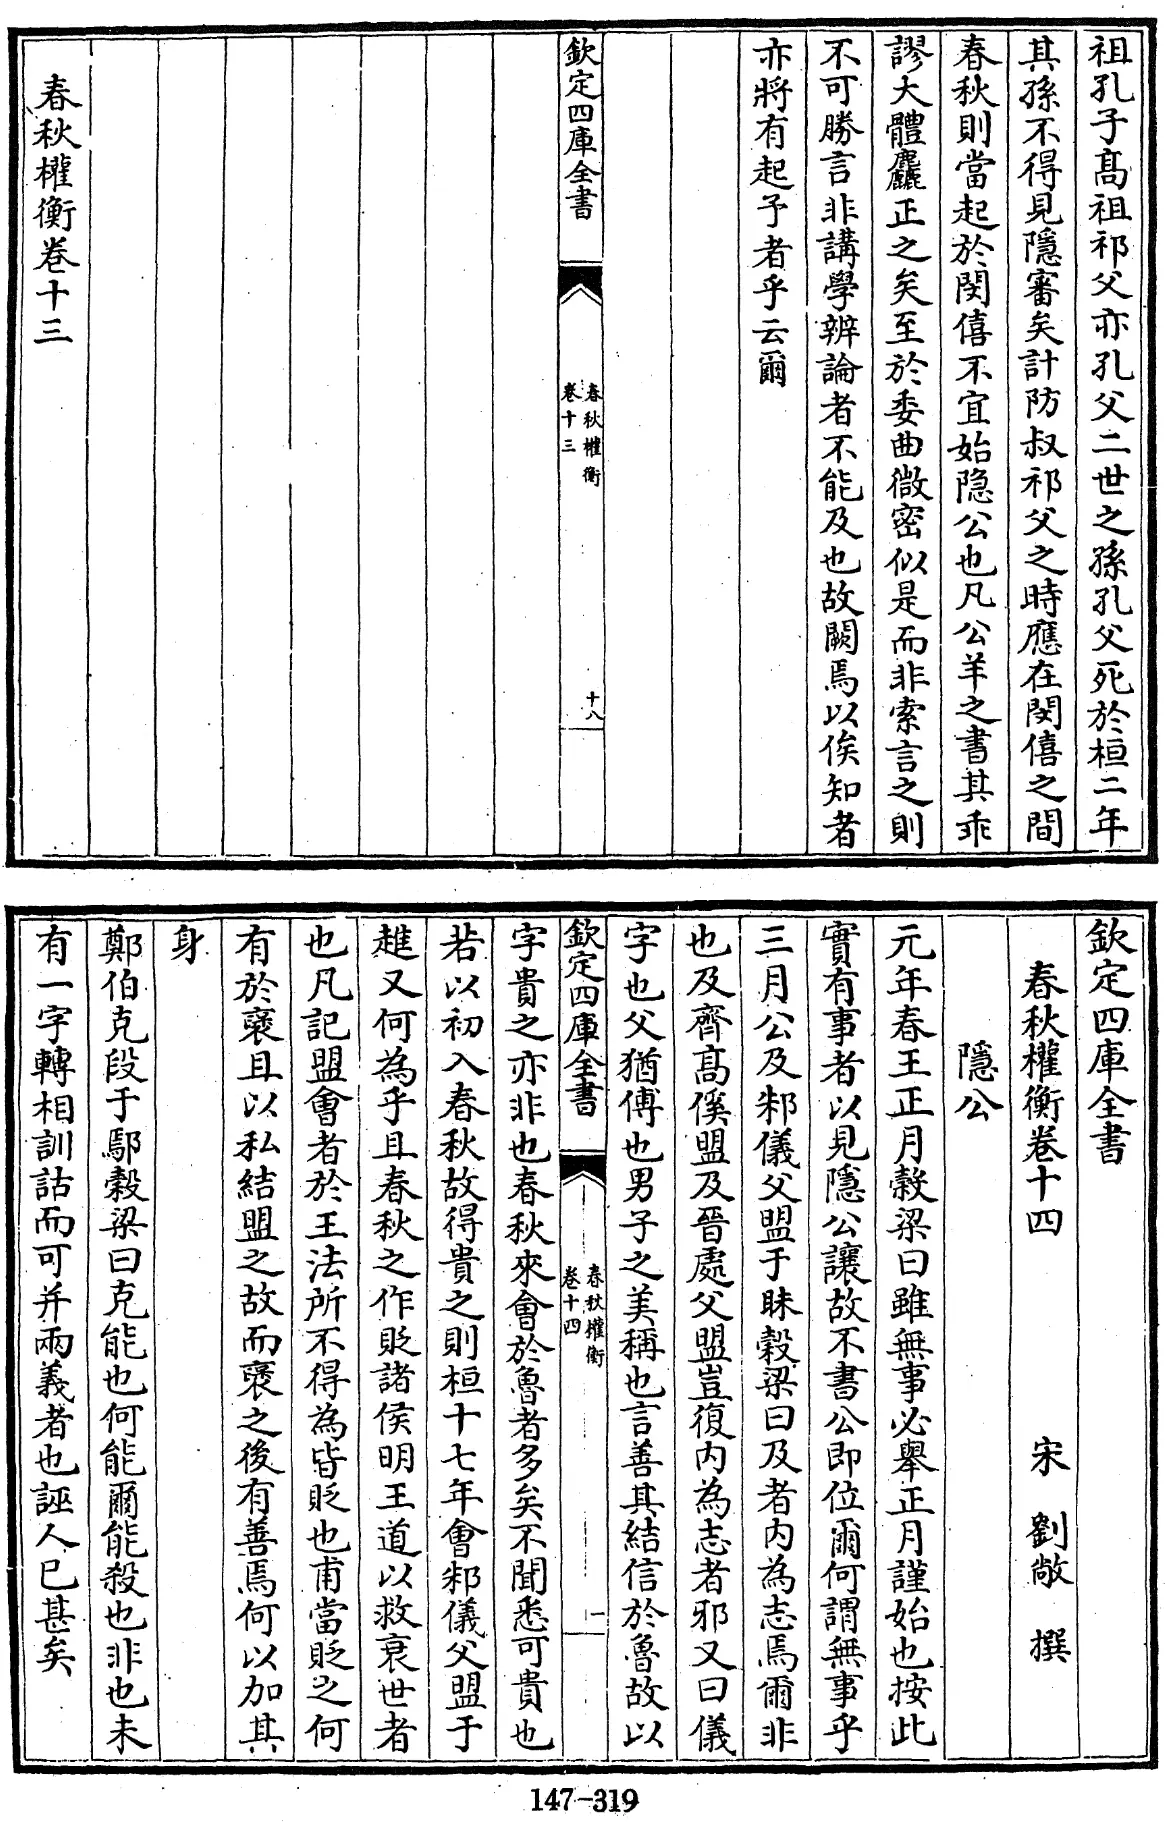 祖孔子髙祖祁父亦孔父二世之孫孔父死於桓二年
其孫不得見隱審矣計防叔祁父之時應在閔僖之間
春秋則當起於閔僖不宜始隐公也凡公羊之書其乖
謬大體麤正之矣至於委曲微密似是而非索言之則
不可勝言非講學辨論者不能及也故闕焉以俟知者
亦將有起予者乎云爾
欽定四庫全書
春秋權衡
卷十三
十八
春秋權衡卷十三
欽定四庫全書
春秋權衡卷十四
宋 劉敞 撰
隱公
元年春王正月穀梁曰雖無事必舉正月謹始也按此
實有事者以見隱公讓故不書公即位爾何謂無事乎
三月公及邾儀父盟于眜穀梁曰及者内為志焉爾非
也及齊髙傒盟及晉處父盟豈復内為志者邪又曰儀
字也父猶傅也男子之美稱也言善其結信於魯故以
欽定四庫全書
春秋權衡
卷十四
一
字貴之亦非也春秋來會於魯者多矣不聞悉可貴也
若以初入春秋故得貴之則桓十七年會邾儀父盟于
趡又何為乎且春秋之作貶諸侯明王道以救衰世者
也凡記盟會者於王法所不得為皆貶也甫當貶之何
有於襃且以私結盟之故而襃之後有善焉何以加其
身
鄭伯克段于鄢穀梁曰克能也何能爾能殺也非也未
有一字轉相訓詁而可并兩義者也誣人已甚矣
147-319